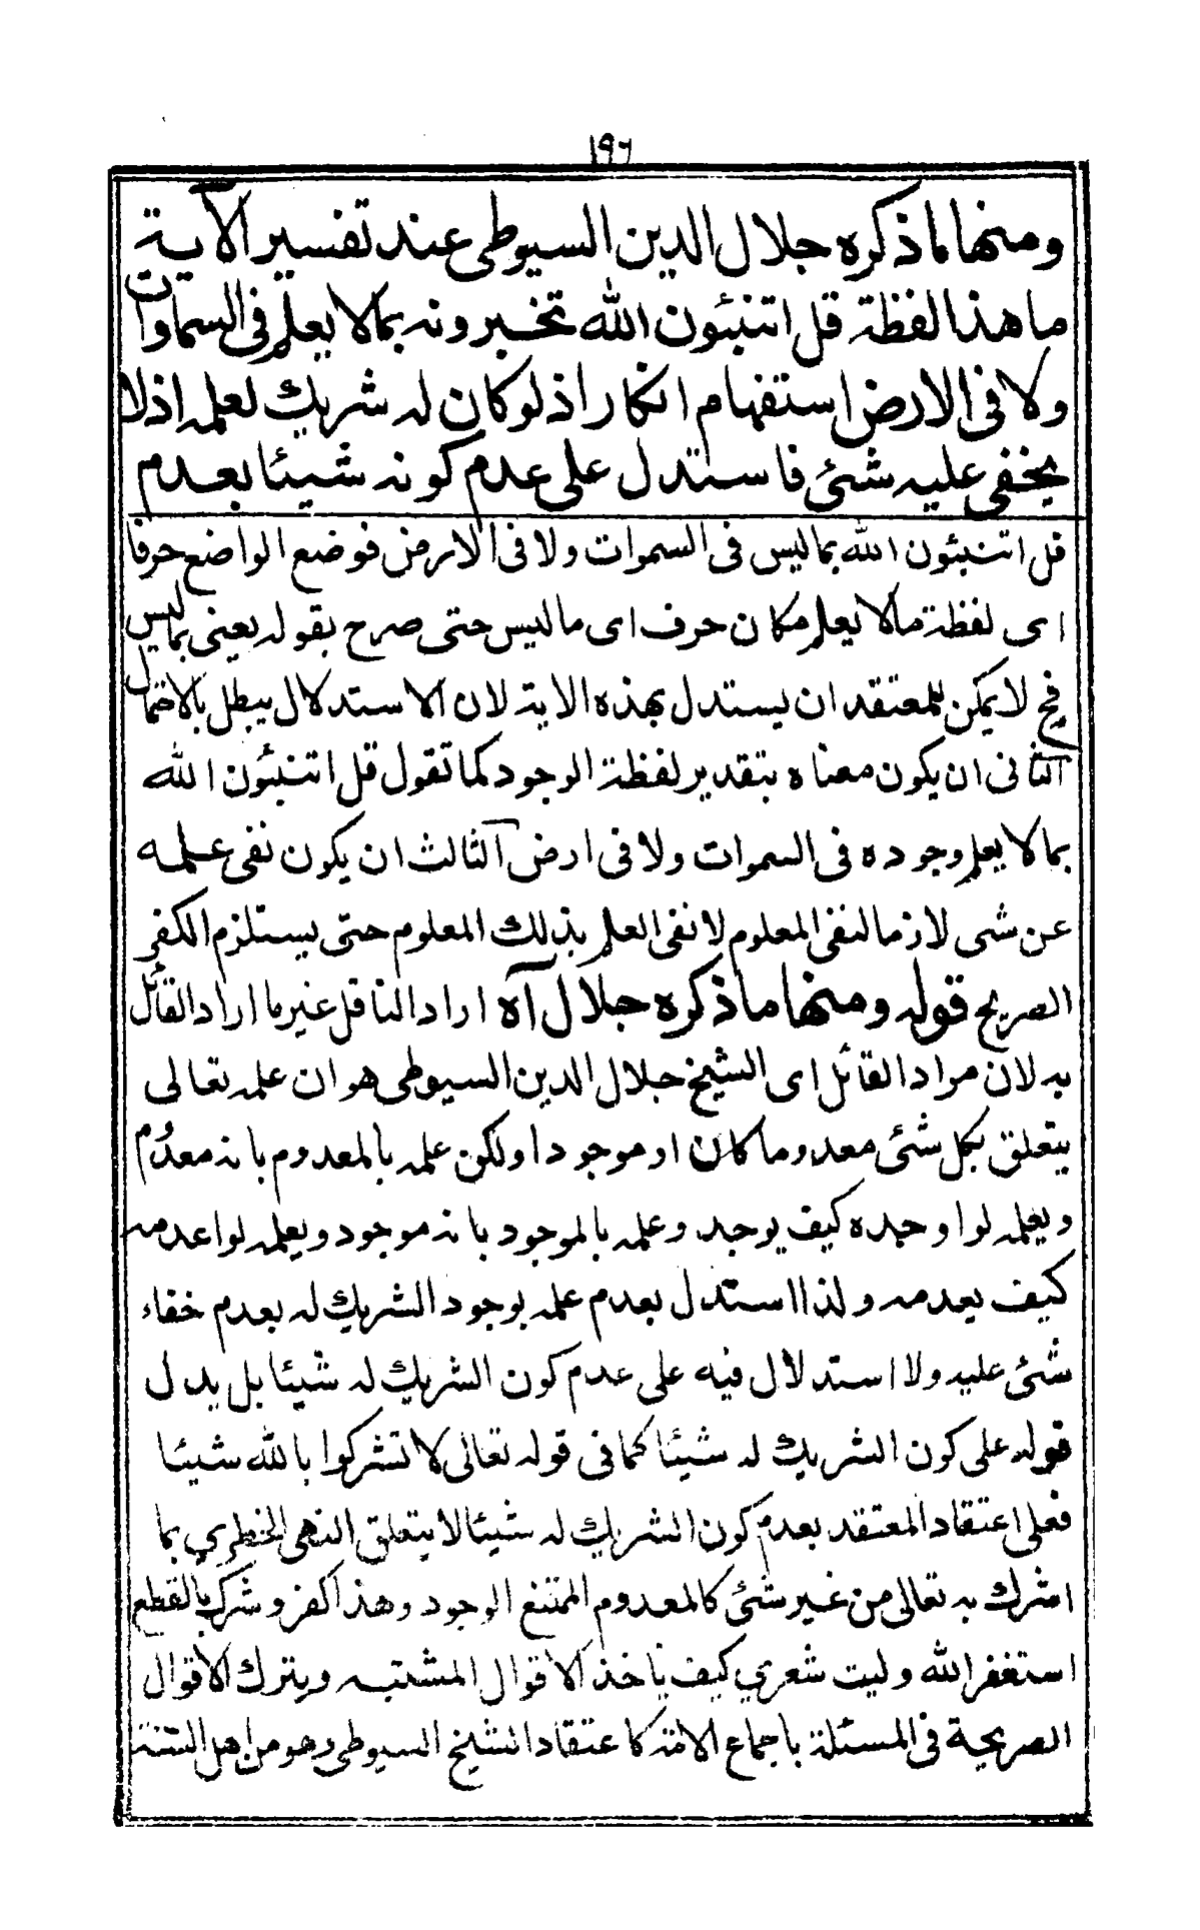 ١٩٦
ومنها ما ذكره جلال الدين السيوطى عند تفسير الآية
ما هذا لفظة قل اتنبئون الله تخبرونه بمالا يعلم فى السماوات
ولا فى الارض استفهام انكار اذ لو كان له شريك لعلمه اذ لا
يخفى عليه شئ فاستدل على عدم كونه شيئا بعدم
قل اتنبئون الله بماليس فى السموات ولا فى الارض فوضع الواضع حرفا
اى لفظة مالا يعلم مكان حرف اى ماليس حتى صرح بقوله يعنى بماليس
فح لا يمكن للمعتقد ان يستدل بهذه الاية لان الاستدلال يبطل بالاحتمال
الثانى ان يكون معناه بتقدير لفظة الوجود كما تقول قل اتنبئون الله
بمالا يعلم وجوده فى السموات ولا فى ارض الثالث ان يكون نفى علمه
عن شى لازما لنفى المعلوم لا نفى العلم بذلك المعلوم حتى يستلزم الكفر
الصريح قوله ومنها ما ذكره جلال آه اراد الناقل غير ما اراد القائل
به لان مراد القائل اى الشيخ جلال الدين السيوطى هو ان علمه تعالى
يتعلق بكل شئ معدوما كان او موجودا ولكن علمه بالمعدوم بانه معدوم
ويعلمه لو اوجده كيف يوجد وعلمه بالموجود بانه موجود ويعلمه لو اعدمه
كيف يعدمه ولذا استدل بعدم علمه بوجود الشريك له بعدم خفاء
شئ عليه ولا استدلال فيه على عدم كون الشريك له شيئا بل يدل
قوله على كون الشريك له شيئا كما فى قوله تعالى لا تشركوا بالله شيئا
فعلى اعتقاد المعتقد بعدم كون الشريك له شيئا لا يتعلق النهى الخطري بما
اشرك به تعالى من غير شئ كالمعدوم الممتنع الوجود وهذا كفر وشرك بالقطع
استغفر الله وليت شعري كيف ياخذ الاقوال المشتبه ويترك الاقوال
الصريحة فى المسئلة باجماع الامة كاعتقاد الشيخ السيوطى وهو من اهل السنة